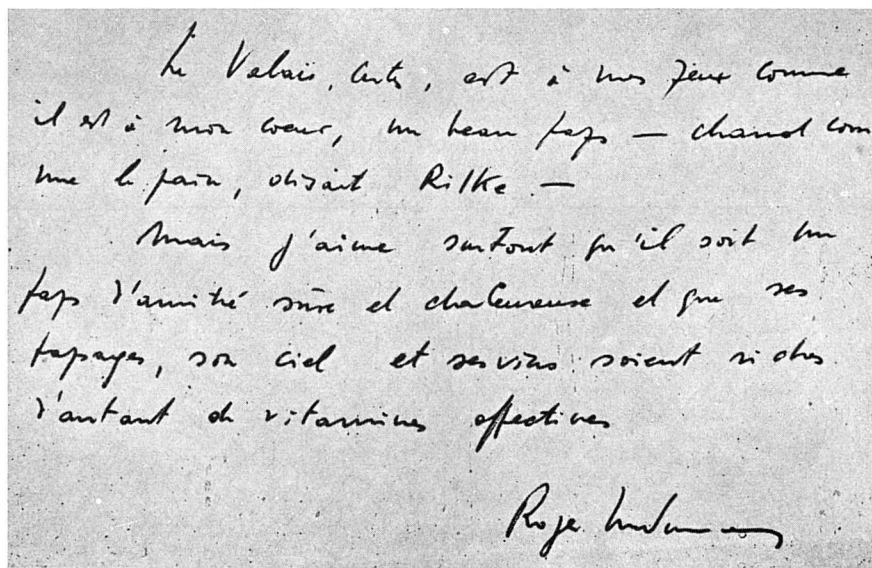 Le Valais, certes, est à mes yeux comme
il est à mon coeur, un beau pays — chaud com
me le pain, disait Rilke —
Mais j'aime surtout qu'il soit un
pays d'amitié sûre et chaleureuse et que ses
paysages, son ciel et ses vins soient riches
d'autant de vitamines affectives
Roger